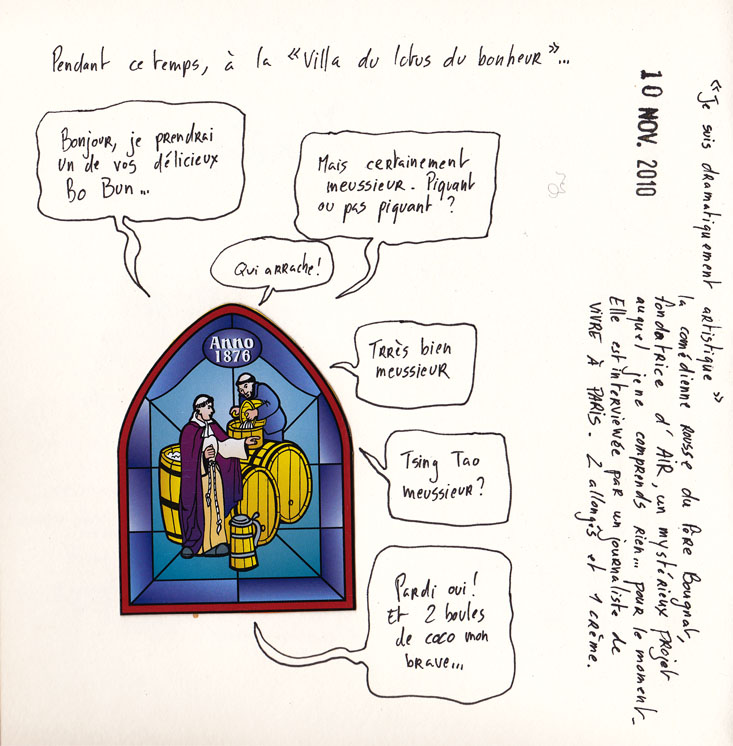 Pendant ce temps, à la «Villa du lotus du bonheur»...
Bonjour, je prendrai
un de vos délicieux
Bo Bun...
Mais certainement
meussieur. Piquant
ou pas piquant ?
Qui arrache!
Anno
1876
Trrès bien
meussieur
Tsing Tao
meussieur?
Pardi oui!
Et 2 boules
de coco mon
brave...
10 NOV. 2010
«Je suis dramatiquement artistique»
la comédienne rousse du Père Bougnat,
fondatrice d'AIR, un mystérieux projet
auquel je ne comprends rien... pour le moment_
Elle est interviewée par un journaliste de
VIVRE À PARIS. 2 allongés et 1 crème.